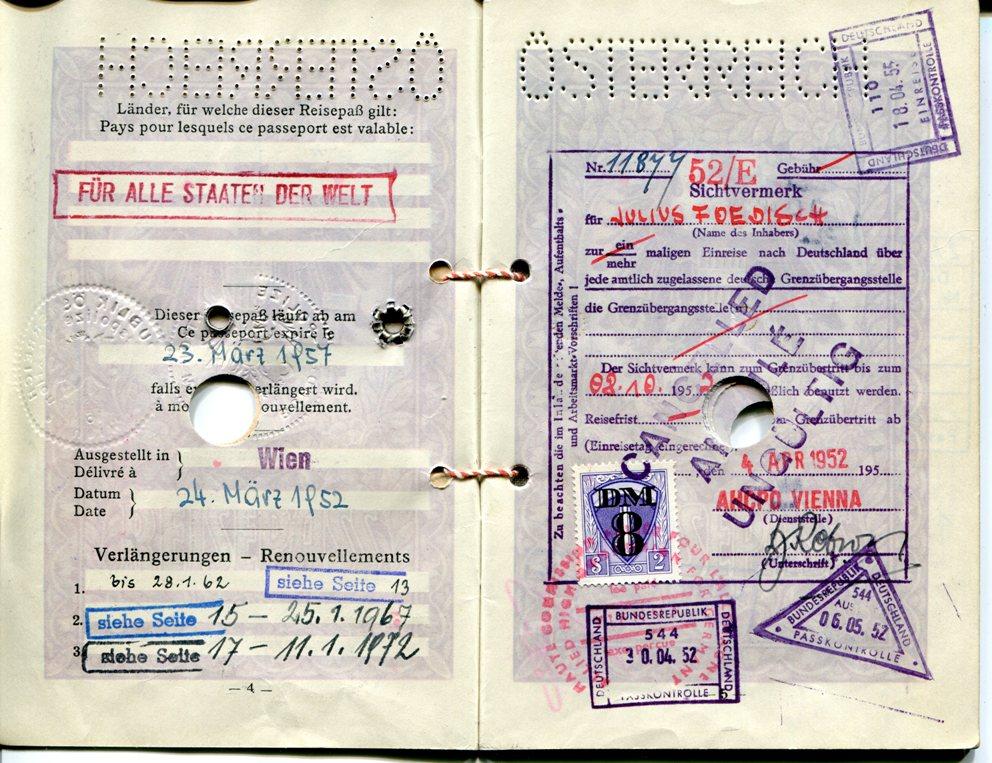 Länder, für welche dieser Reisepaß gilt:
Pays pour lesquels ce passeport est valable:
FÜR ALLE STAATEN DER WELT
Dieser Reisepaß läuft ab am
Ce passeport expire le
23. März 1957
falls er verlängert wird.
à renouvellement.
Ausgestellt in } Wien
Délivré à
Datum } 24. März 1952
Date
Verlängerungen – Renouvellements
1. bis 28.1.62 siehe Seite 13
2. siehe Seite 15 – 25.1.1967
3. siehe Seite 17 – 11.1.1972
— 4 —
ÖSTERREICH
DEUTSCHLAND
110
18.04.55
EINREISE
PASSKONTROLLE
DEUTSCHLAND
Nr. 11877 52/E Gebühr
Sichtvermerk
für JULIUS FOEDISCH
(Name des Inhabers)
zur ein maligen Einreise nach Deutschland über
mehr
jede amtlich zugelassene deutsche Grenzübergangsstelle
die Grenzübergangsstelle(n)
Der Sichtvermerk kann zum Grenzübertritt bis zum
02.10. 195 benutzt werden.
Reisefrist Grenzübertritt ab
(Einreisetag eingerechnet)
4 APR 1952 195
AHCPO VIENNA
(Dienststelle)
(Unterschrift)
Zu beachten die im Inland Melde, Aufenthalts-
und Arbeitsmarkt-Vorschriften!
CANCELLED
ANNULÉ
UNGÜLTIG
DM
8
$ 2
BUNDESREPUBLIK
DEUTSCHLAND
544
30.04.52
DEUTSCHLAND
PASSKONTROLLE
BUNDESREPUBLIK
DEUTSCHLAND
544
AUS
06.05.52
PASSKONTROLLE